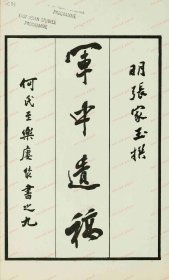 明張家玉撰
軍中遺稿
何氏至樂廔叢書之九
EAST ASIAN STUDIES
PROGRAMME